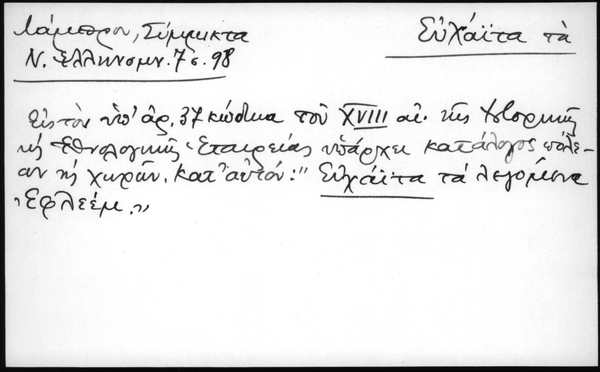 Λάμπρου, Σύμμικτα
Εὐχάϊτα τὰ
Ν. Ἑλληνομν. 7 σ. 98
Εἰς τὸν ὑπ' ἀρ. 37 κώδικα τοῦ XVIII αἰ. τῆς Ἱστορικῆς
κῆς Ἐθνολογικῆς Ἑταιρείας ὑπάρχει κατάλογος πόλε-
ων κὴ χωρῶν. Κατ' αὐτόν: "Εὐχάϊτα τὰ λεγόμενα
Ἐφλεέμ."